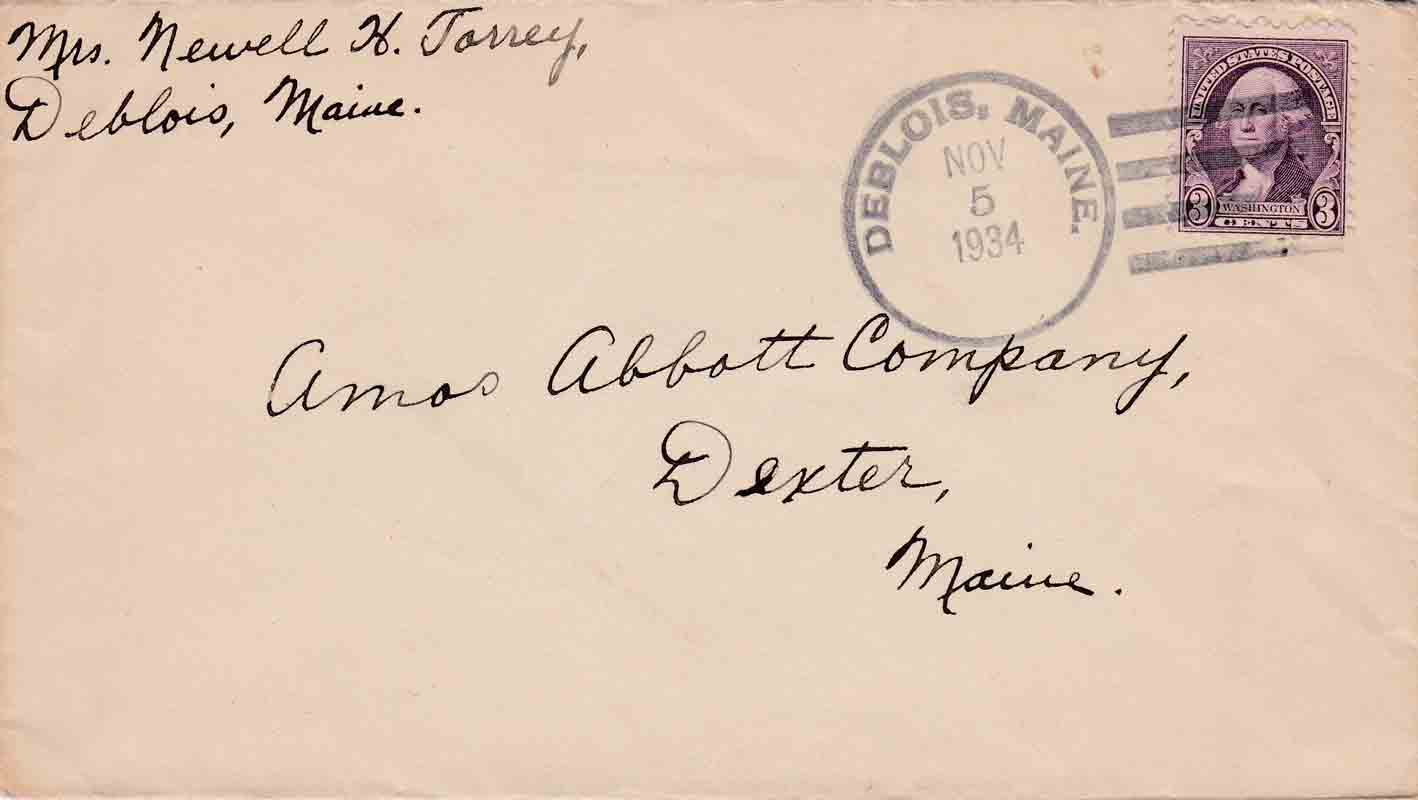 Mrs. Newell H. Torrey,
Deblois, Maine.
DEBLOIS, MAINE.
NOV
5
1934
UNITED STATES POSTAGE
3 WASHINGTON 3
CENTS
Amos Abbott Company,
Dexter,
Maine.